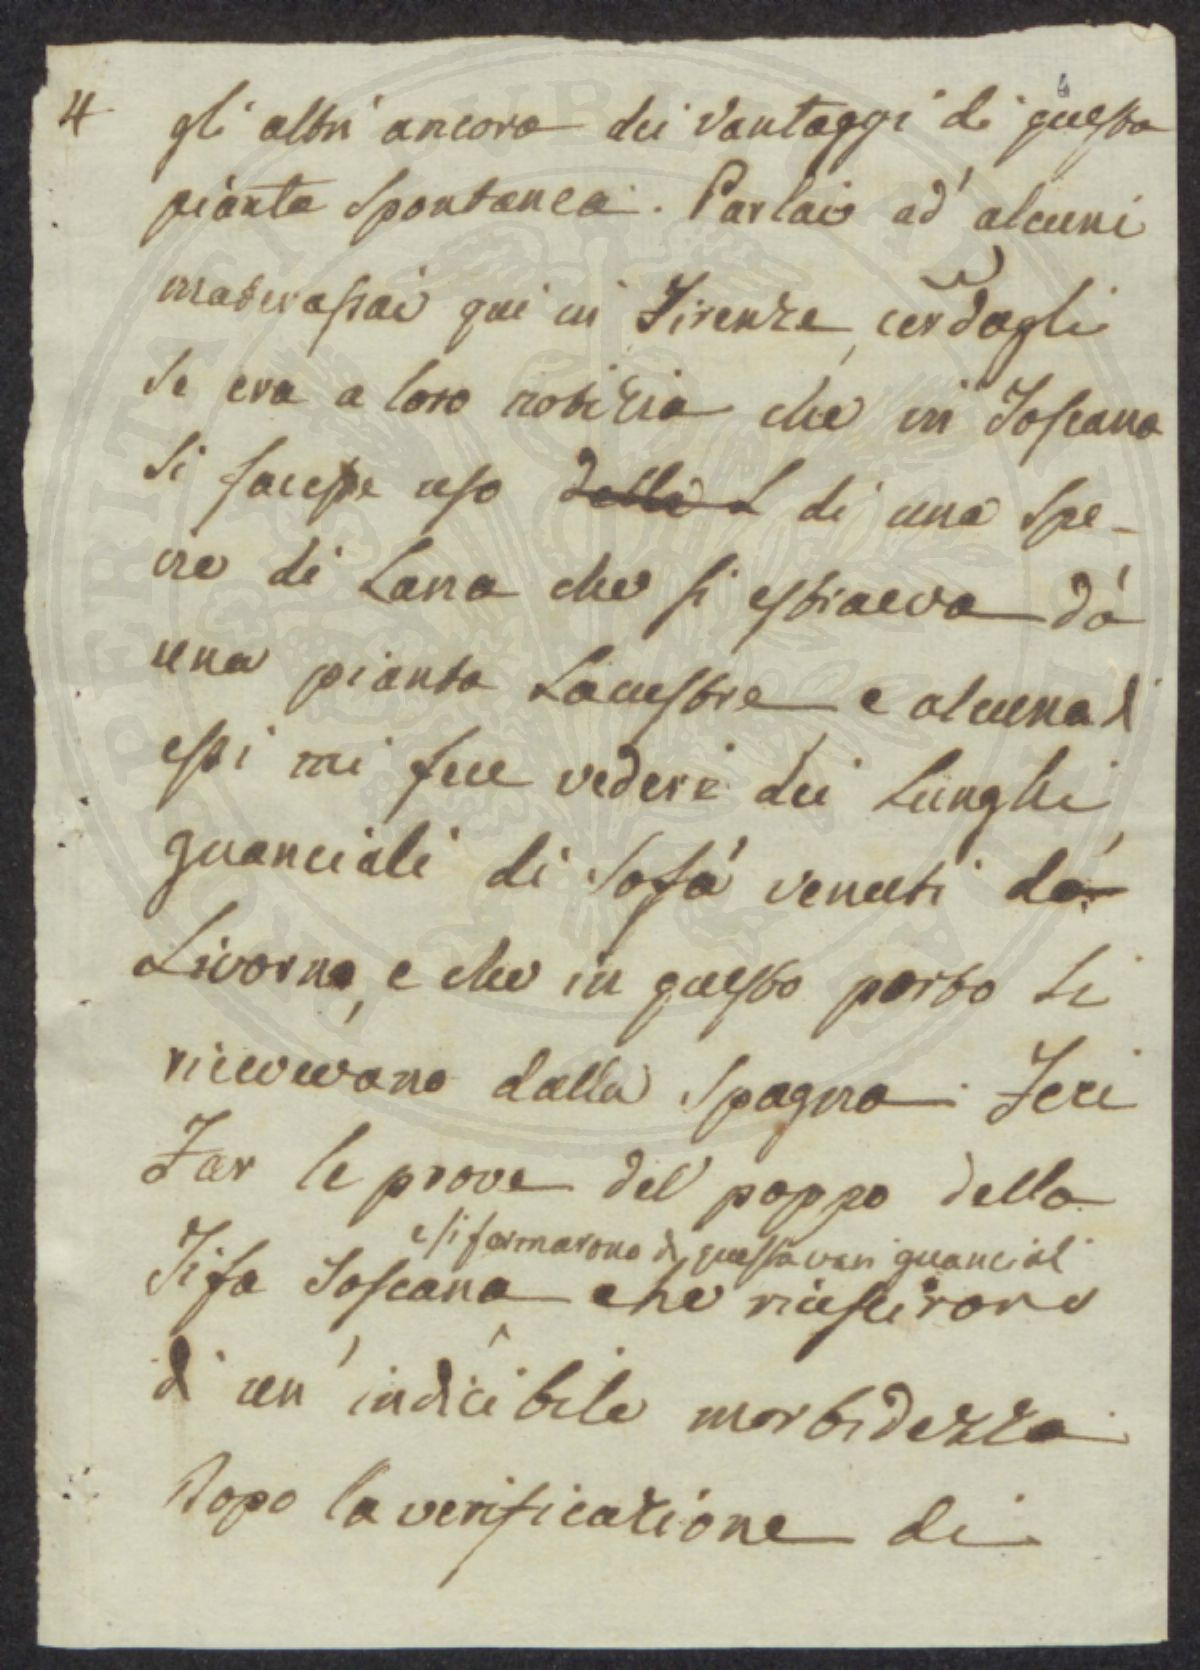 4 gli altri ancora dei vantaggi di questa
pianta Spontanea. Parlai ad' alcuni
materassai qui in Firenze,
se era a loro notizia che in Toscana
si facesse uso della L di una Spe-
cie di Lana che si estraeva dà
una pianta Lacustre, e alcuna di
essi mi fece vedere dei Lunghi
guanciali di Sofà venuti da
Livorno, e che in questo porto si
ricevevano dalla Spagna. Feci
Far le prove del pappo della
e si formarono di questa vari guanciali
Tifa Toscana che riescirono
di un' indicibile morbidezza
Dopo la verificazione di